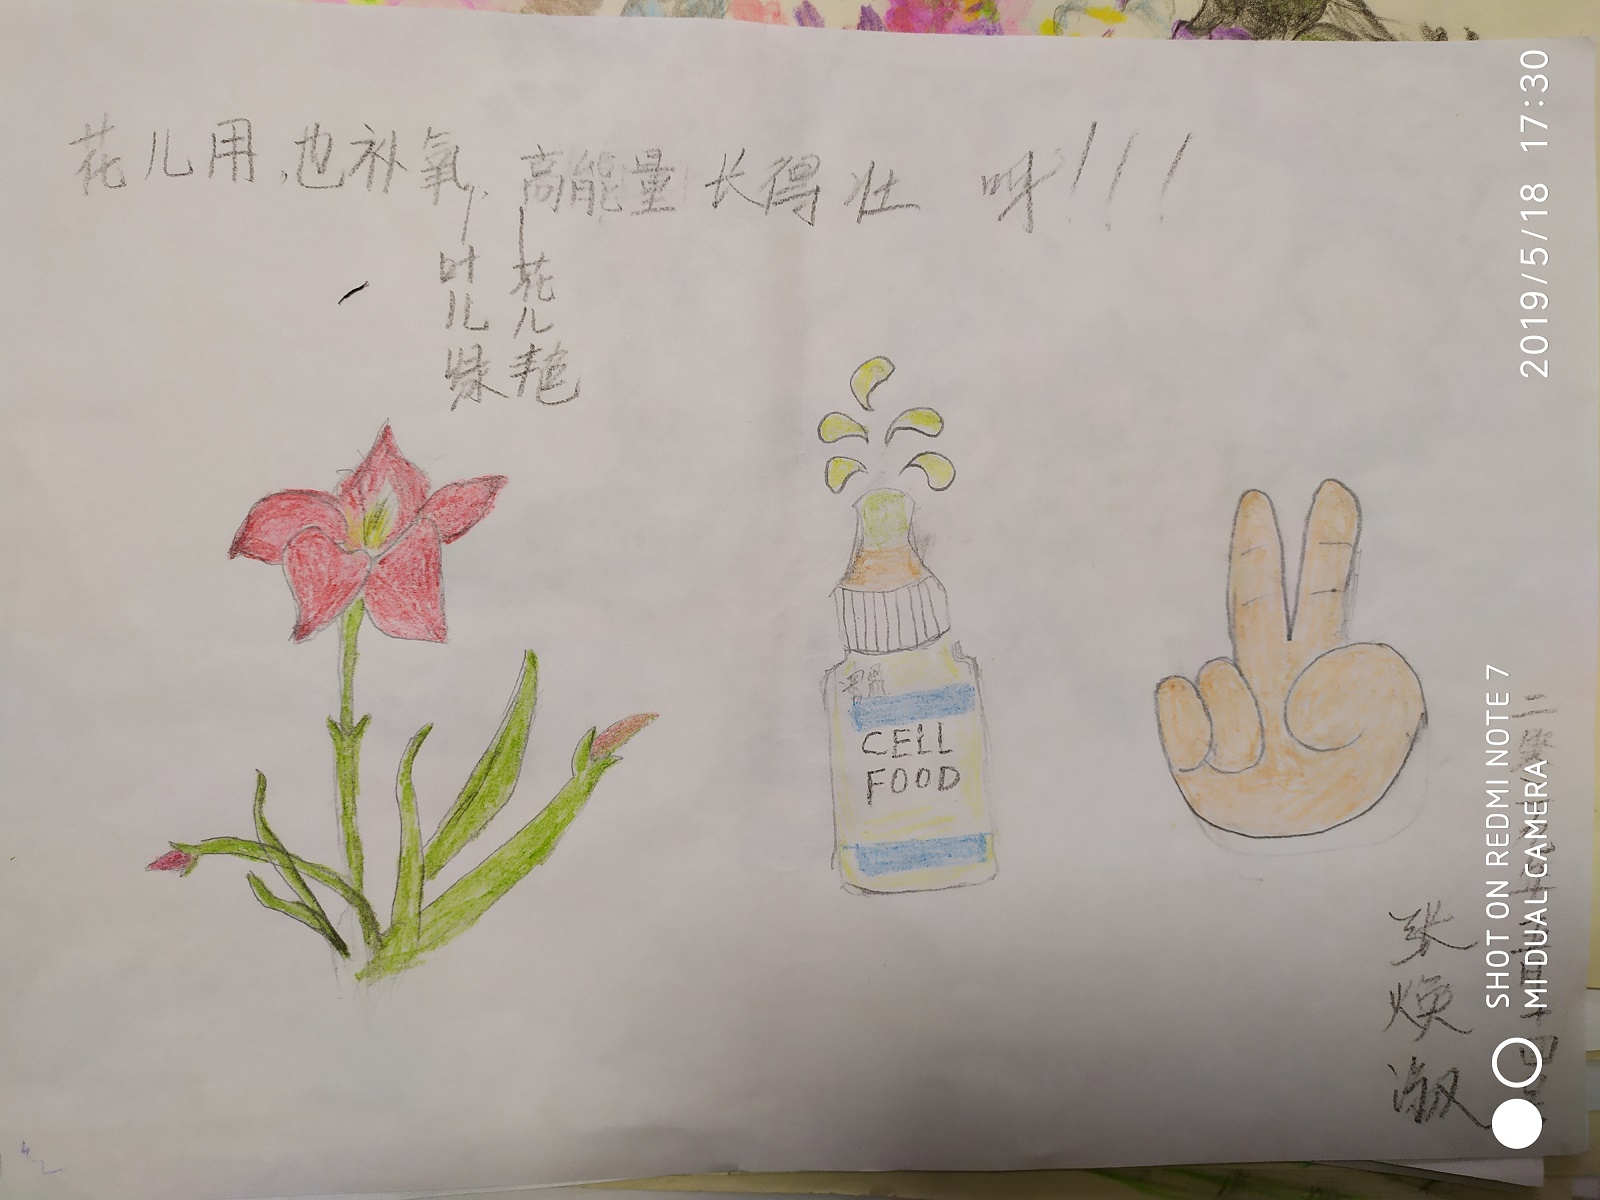 花儿用,也补氧,高能量长得壮 呀!!!
叶儿绿
花儿艳
CELL
FOOD
张焕淑
2019/5/18 17:30
SHOT ON REDMI NOTE 7
MI DUAL CAMERA